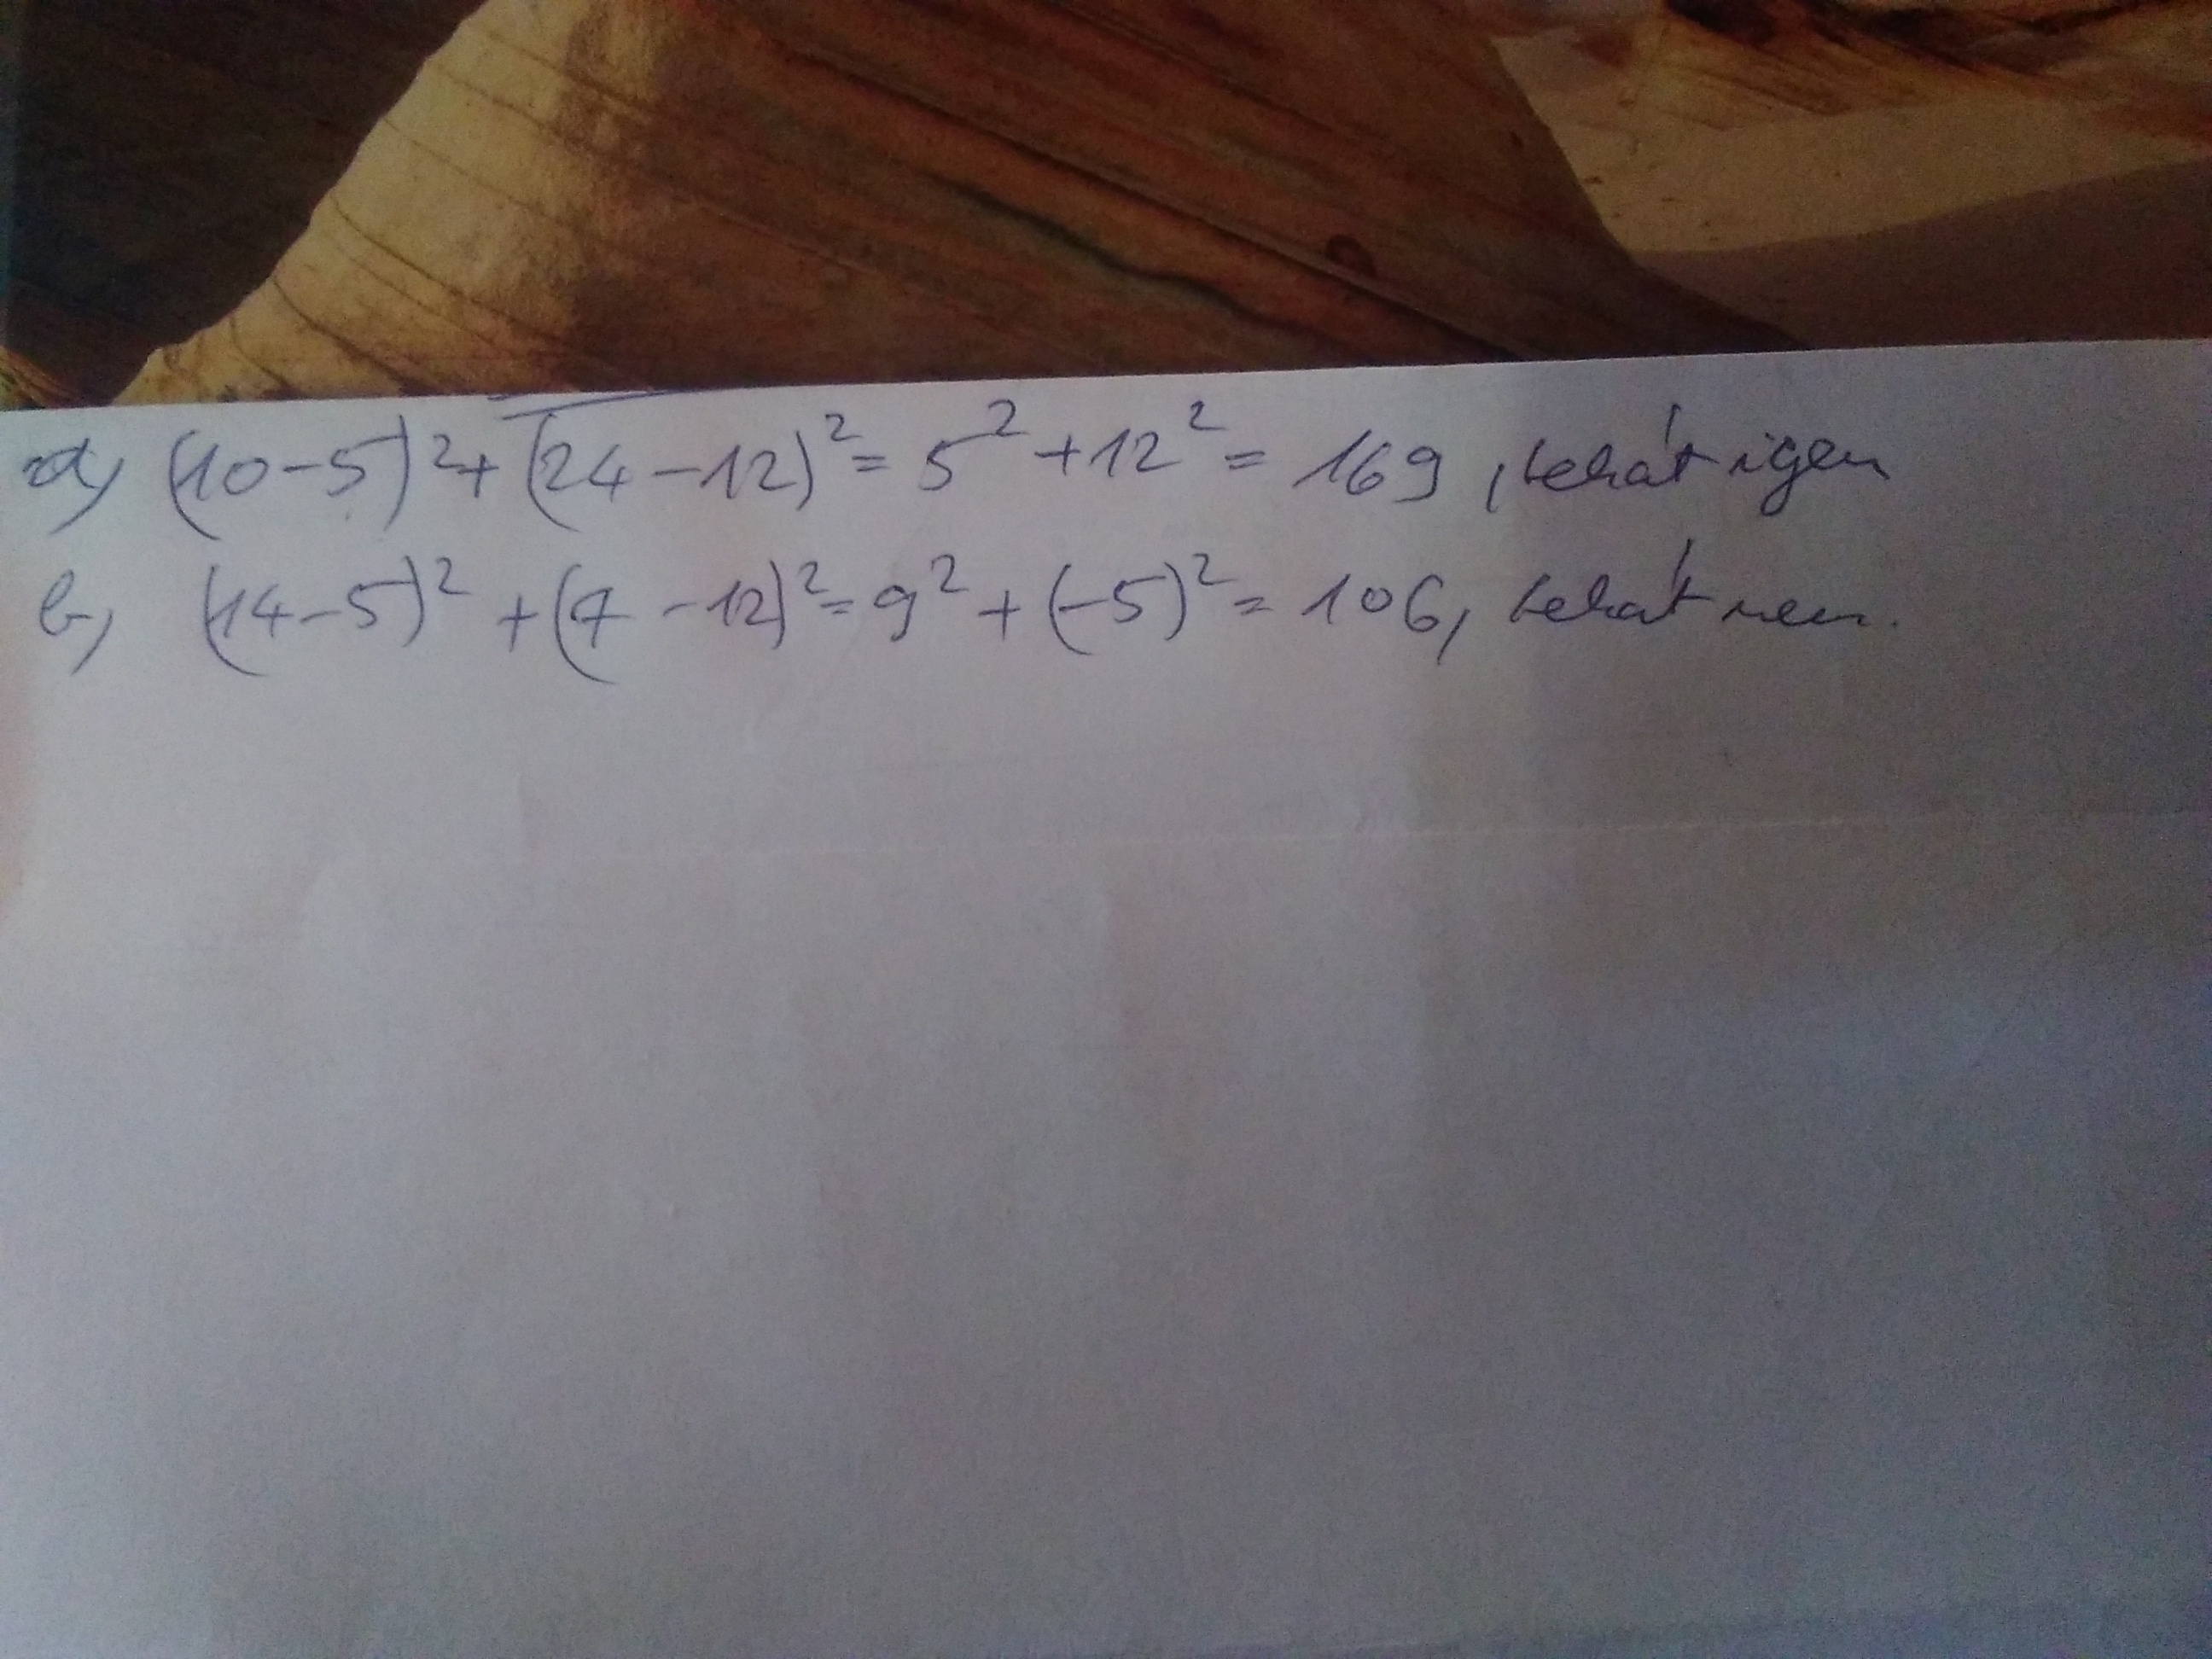 a, (10-5)²+(24-12)²= 5²+12²= 169, tehát igen
b, (14-5)²+(7-12)²=9²+(-5)²= 106, tehát nem.